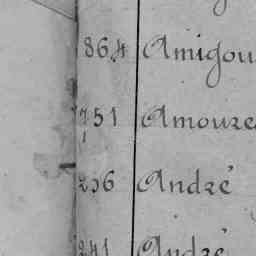 864 Amigou
751 Amoure
206 André
241 André